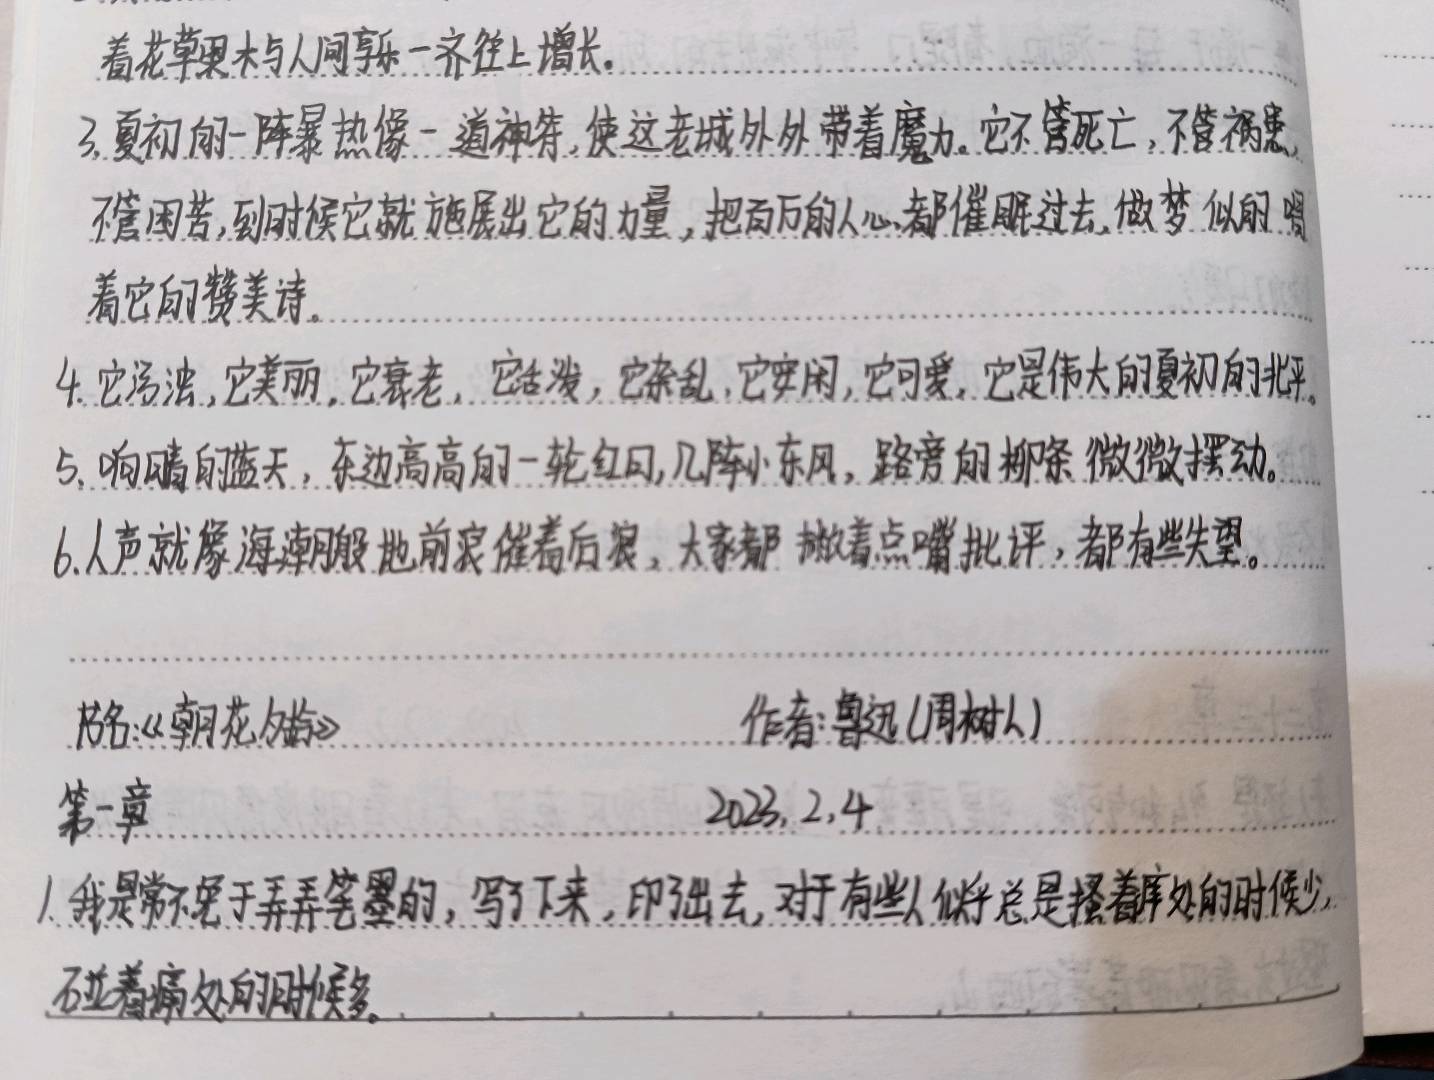 着花草果木与人间享乐一齐往上增长。
3.夏初的一阵暴热像一道神符,使这老城外外带着魔力。它不管死亡,不管祸患,
不管困苦,到时候它就施展出它的力量,把百万的人心都催眠过去,做梦似的唱
着它的赞美诗。
4.它污浊,它美丽,它衰老,它活泼,它杂乱,它安闲,它可爱,它是伟大的夏初的北平。
5.响晴的蓝天,东边高高的一轮红日,几阵小东风,路旁的柳条微微摆动。
6.人声就像海潮般地前浪催着后浪,大家都撇着点嘴批评,都有些失望。
书名:《朝花夕拾》 作者:鲁迅(周树人)
第一章 2023.2.4
1.我是常不免于弄弄笔墨的,写了下来,印了出去,对于有些人似乎总是搔着痒处的时候少,
碰着痛处的时候多。